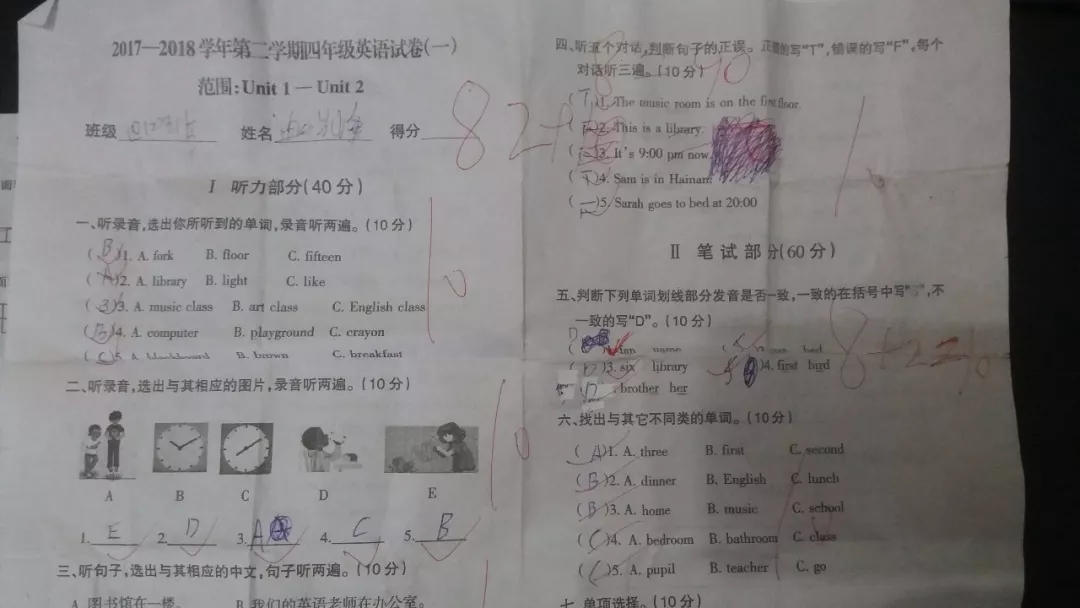 2017—2018学年第二学期四年级英语试卷(一)
范围:Unit 1 — Unit 2
班级 姓名 得分
82+
Ⅰ 听力部分(40分)
一、听录音,选出你所听到的单词,录音听两遍。(10分)
(B)1. A. fork B. floor C. fifteen
(A)2. A. library B. light C. like
( )3. A. music class B. art class C. English class
(B)4. A. computer B. playground C. crayon
(C)5. A. blackboard B. brown C. breakfast
10
二、听录音,选出与其相应的图片,录音听两遍。(10分)
A B C D E
1. E 2. D 3. A 4. C 5. B
10
三、听句子,选出与其相应的中文,句子听两遍。(10分)
A. 图书馆在一楼。 B. 我们的英语老师在办公室。
四、听五个对话,判断句子的正误。正确的写“T”,错误的写“F”,每个
对话听三遍。(10分)
(T)1. The music room is on the first floor.
( )2. This is a library.
( )3. It's 9:00 pm now.
(T)4. Sam is in Hainan.
( )5. Sarah goes to bed at 20:00
10
Ⅱ 笔试部分(60分)
五、判断下列单词划线部分发音是否一致,一致的在括号中写“ ”,不
一致的写“D”。(10分)
name
(D)3. six library ( )4. first bird
D brother her
8+2=10
六、找出与其它不同类的单词。(10分)
(A)1. A. three B. first C. second
(B)2. A. dinner B. English C. lunch
(B)3. A. home B. music C. school
(C)4. A. bedroom B. bathroom C. class
(C)5. A. pupil B. teacher C. go
七、单项选择。(10分)